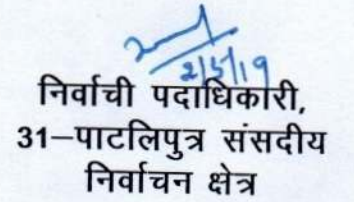 2/5/19
निर्वाची पदाधिकारी,
31–पाटलिपुत्र संसदीय
निर्वाचन क्षेत्र